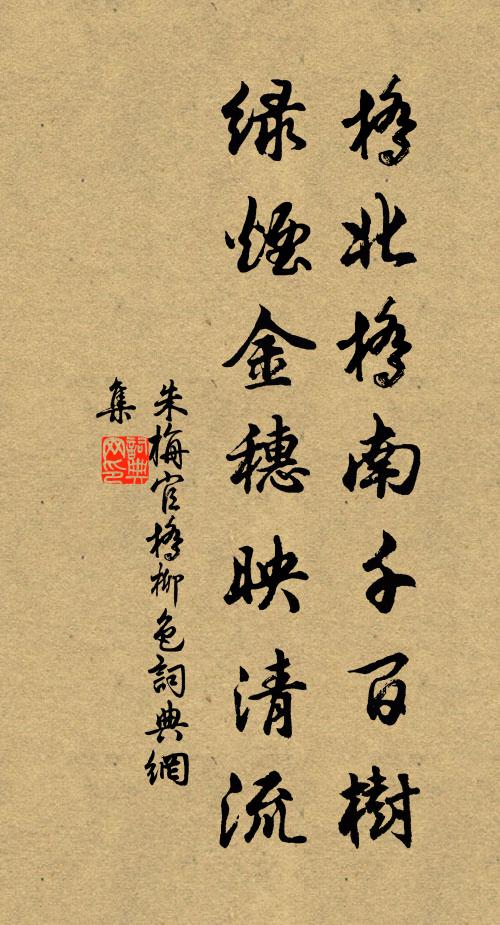 橋北橋南千百樹
綠煙金穗映清流
朱梅官橋柳色詞典網
集
詞典网印